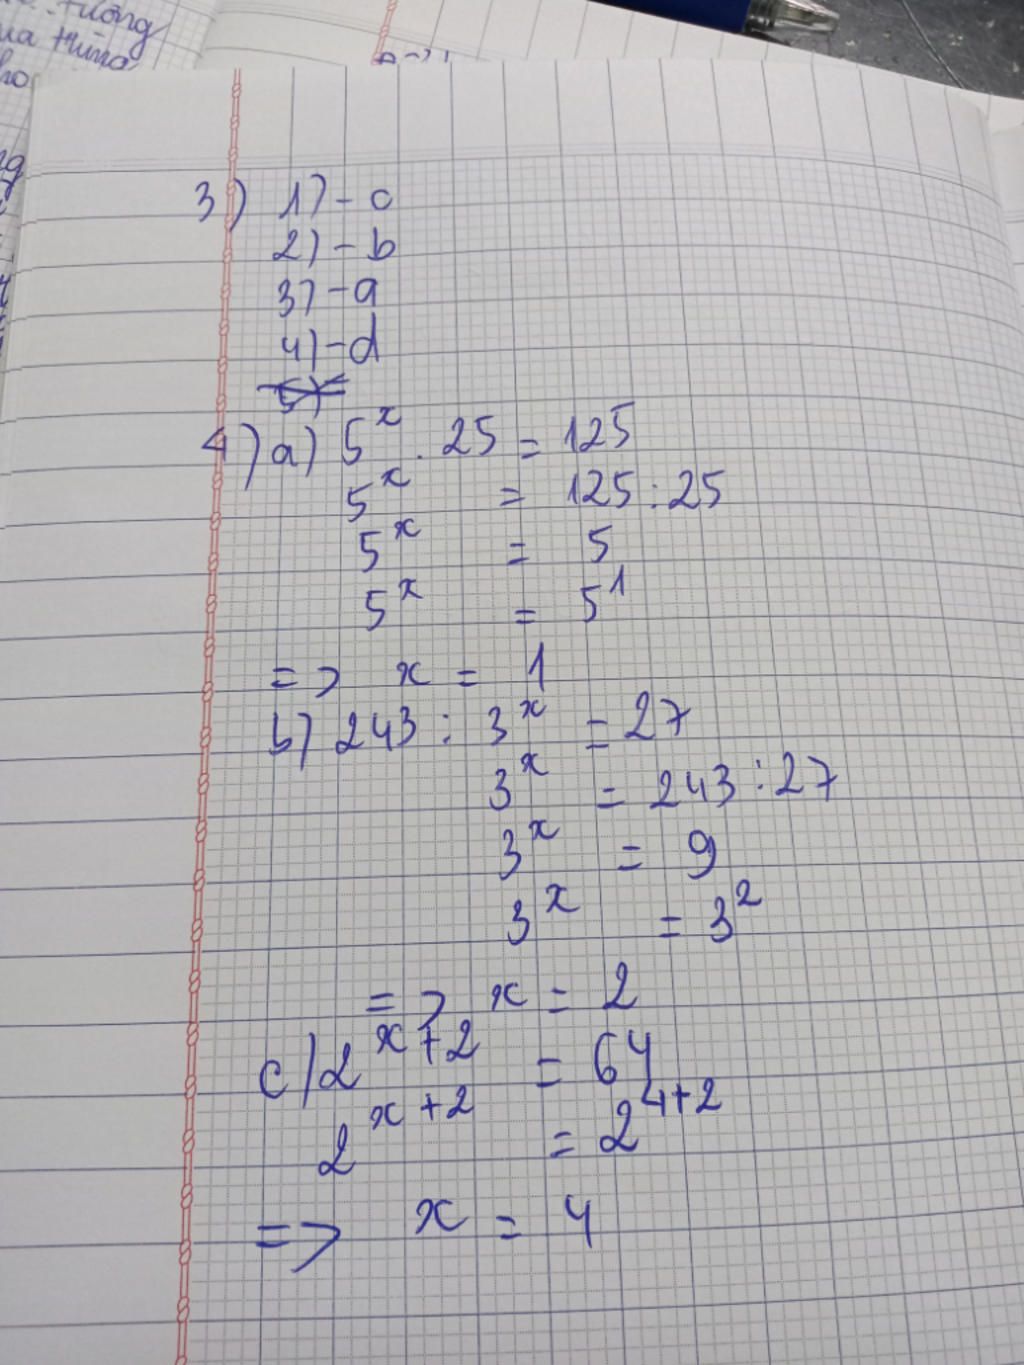 tưởng
3) 1) - c
2) - b
3) - a
4) - d
5)
4) a) 5^x . 25 = 125
5^x = 125 : 25
5^x = 5
5^x = 5^1
=> x = 1
b) 243 : 3^x = 27
3^x = 243 : 27
3^x = 9
3^x = 3^2
=> x = 2
c) 2^x+2 = 64
2^x+2 = 2^4+2
=> x = 4